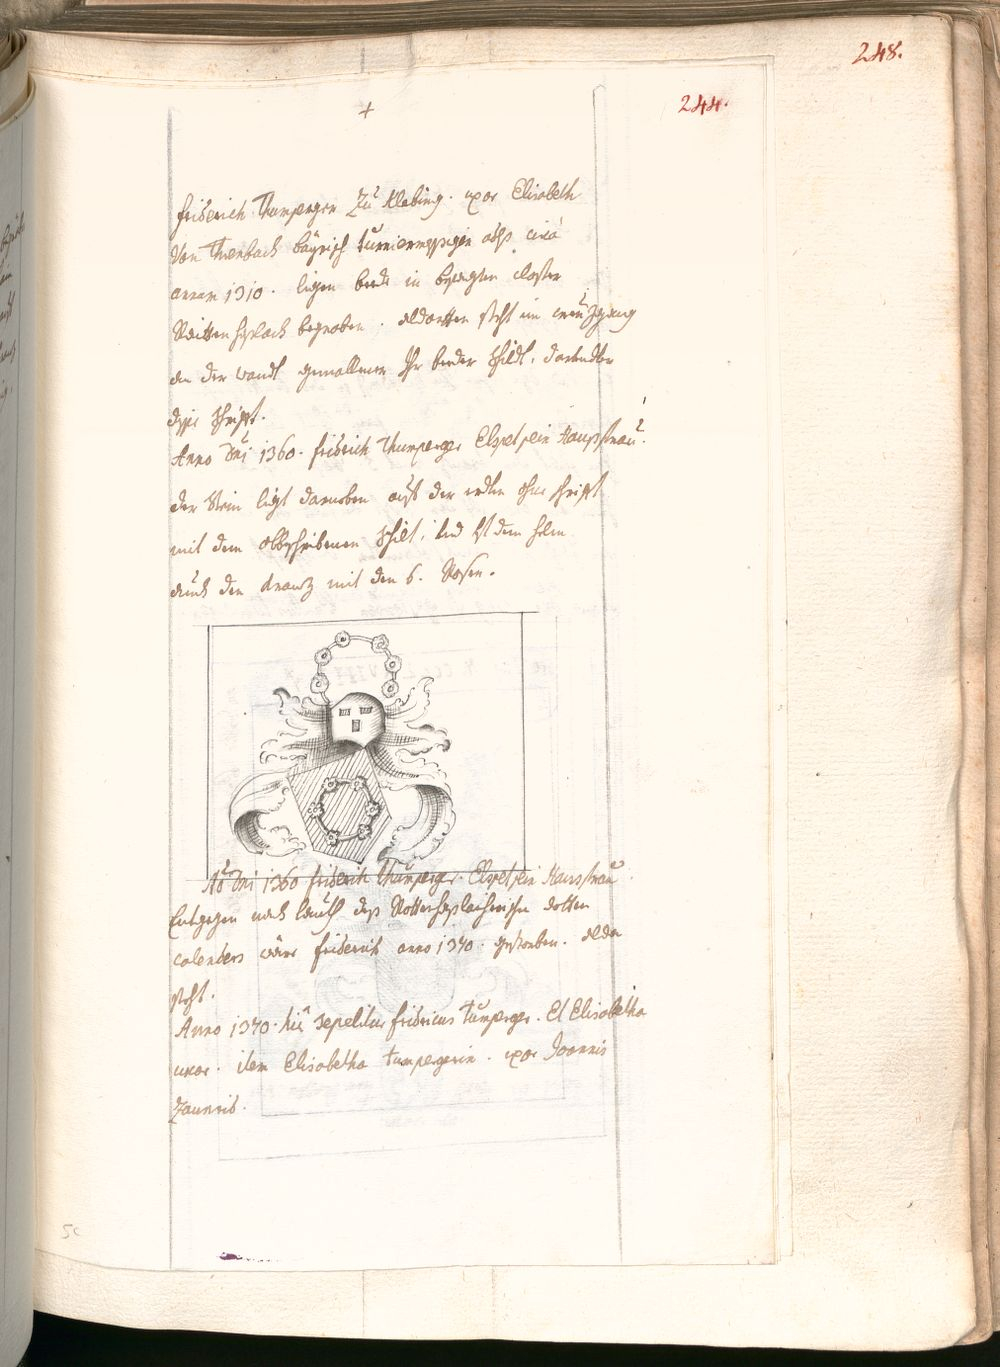 248.
244.
+
friderich Thumperger Zu Klebing. uxor Elisabeth
Von Trenbach bayrisch turniermessigen adls circa
annum 1310. ligen beede in besagten closter
Raittenhaslach begraben. aldorten steht im creuzgang
an der wandt gemallener Ihr beeder schildt, darundter
dise schrifft.
Anno Dni 1360. fridrich Thumperger Elspet sein Hausfrau.
der Stein ligt darneben auf der erden ohne schrifft
mit dem obbeschribenen schilt, und ist dem helm
durch den Cranz mit den 6. Rosen.
Ao Dni 1360 friderich Thumperger. Elspet sein Hausfrau.
Entgegen nach lauth dess Raittenhaslacherischen dotten
calenders wäre friderich anno 1370. gestorben. alda
steht.
Anno 1370. hic sepelitur fridricus Tumperger. Et Elisabetha
uxor. item Elisabetha Tumpergerin. uxor Joannis
Zaunrid.